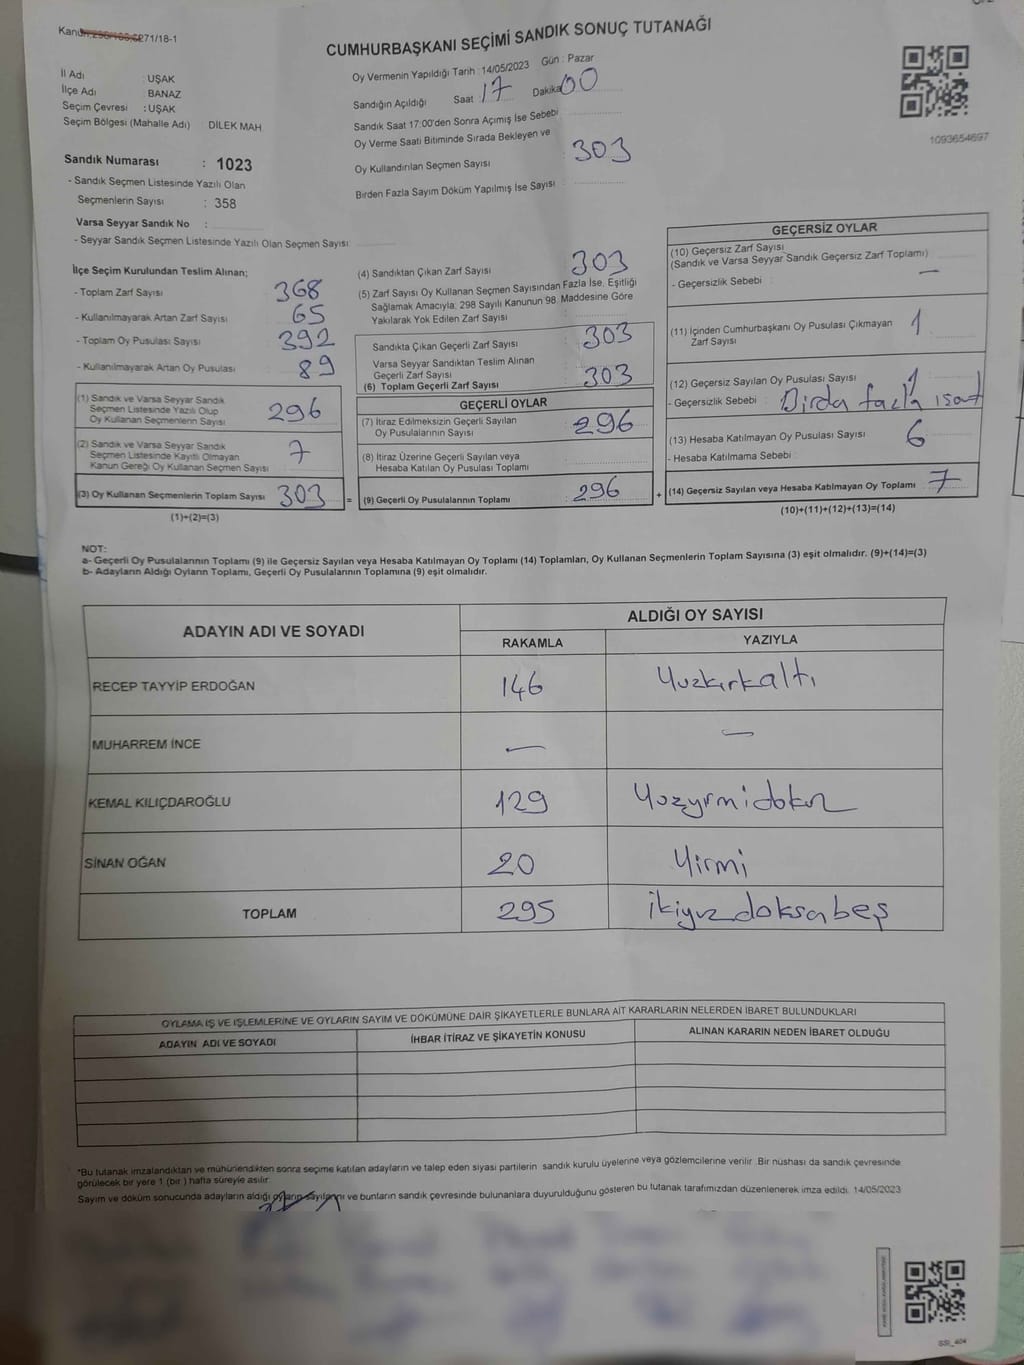 CUMHURBAŞKANI SEÇİMİ SANDIK SONUÇ TUTANAĞI
İl Adı : UŞAK
İlçe Adı : BANAZ
Seçim Çevresi : UŞAK
Seçim Bölgesi (Mahalle Adı) : DİLEK MAH
Sandık Numarası : 1023
- Sandık Seçmen Listesinde Yazılı Olan
Seçmenlerin Sayısı : 358
Varsa Seyyar Sandık No :
- Seyyar Sandık Seçmen Listesinde Yazılı Olan Seçmen Sayısı
Oy Vermenin Yapıldığı Tarih : 14/05/2023 Gün : Pazar
Sandığın Açıldığı Saat 17 Dakika 00
Sandık Saat 17:00'den Sonra Açımış İse Sebebi
Oy Verme Saati Bitiminde Sırada Bekleyen ve
Oy Kullandırılan Seçmen Sayısı 303
Birden Fazla Sayım Döküm Yapılmış İse Sayısı
1093654697
İlçe Seçim Kurulundan Teslim Alınan;
- Toplam Zarf Sayısı 368
- Kullanılmayarak Artan Zarf Sayısı 65
- Toplam Oy Pusulası Sayısı 392
- Kullanılmayarak Artan Oy Pusulası 89
(1) Sandık ve Varsa Seyyar Sandık
Seçmen Listesinde Yazılı Olup
Oy Kullanan Seçmenlerin Sayısı 296
(2) Sandık ve Varsa Seyyar Sandık
Seçmen Listesinde Kayıtlı Olmayan
Kanun Gereği Oy Kullanan Seçmen Sayısı 7
(3) Oy Kullanan Seçmenlerin Toplam Sayısı 303 =
(1)+(2)=(3)
(4) Sandıktan Çıkan Zarf Sayısı 303
(5) Zarf Sayısı Oy Kullanan Seçmen Sayısından Fazla İse, Eşitliği
Sağlamak Amacıyla; 298 Sayılı Kanunun 98. Maddesine Göre
Yakılarak Yok Edilen Zarf Sayısı
Sandıkta Çıkan Geçerli Zarf Sayısı 303
Varsa Seyyar Sandıktan Teslim Alınan
Geçerli Zarf Sayısı
(6) Toplam Geçerli Zarf Sayısı 303
GEÇERLİ OYLAR
(7) İtiraz Edilmeksizin Geçerli Sayılan
Oy Pusulalarının Sayısı 296
(8) İtiraz Üzerine Geçerli Sayılan veya
Hesaba Katılan Oy Pusulası Toplamı
(9) Geçerli Oy Pusulalarının Toplamı : 296 +
GEÇERSİZ OYLAR
(10) Geçersiz Zarf Sayısı
(Sandık ve Varsa Seyyar Sandık Geçersiz Zarf Toplamı) —
- Geçersizlik Sebebi :
(11) İçinden Cumhurbaşkanı Oy Pusulası Çıkmayan 1
Zarf Sayısı
(12) Geçersiz Sayılan Oy Pusulası Sayısı 1
- Geçersizlik Sebebi : Birda fazla isaret
(13) Hesaba Katılmayan Oy Pusulası Sayısı 6
- Hesaba Katılmama Sebebi :
(14) Geçersiz Sayılan veya Hesaba Katılmayan Oy Toplamı 7
(10)+(11)+(12)+(13)=(14)
NOT:
a- Geçerli Oy Pusulalarının Toplamı (9) ile Geçersiz Sayılan veya Hesaba Katılmayan Oy Toplamı (14) Toplamları, Oy Kullanan Seçmenlerin Toplam Sayısına (3) eşit olmalıdır. (9)+(14)=(3)
b- Adayların Aldığı Oyların Toplamı, Geçerli Oy Pusulalarının Toplamına (9) eşit olmalıdır.
ADAYIN ADI VE SOYADI
ALDIĞI OY SAYISI
RAKAMLA YAZIYLA
RECEP TAYYİP ERDOĞAN 146 Yuzkırkaltı
MUHARREM İNCE — —
KEMAL KILIÇDAROĞLU 129 Yuzyrmidokuz
SİNAN OĞAN 20 Yirmi
TOPLAM 295 ikiyuzdoksabeş
OYLAMA İŞ VE İŞLEMLERİNE VE OYLARIN SAYIM VE DÖKÜMÜNE DAİR ŞİKAYETLERLE BUNLARA AİT KARARLARIN NELERDEN İBARET BULUNDUKLARI
ADAYIN ADI VE SOYADI İHBAR İTİRAZ VE ŞİKAYETİN KONUSU ALINAN KARARIN NEDEN İBARET OLDUĞU
*Bu tutanak imzalandıktan ve mühürlendikten sonra seçime katılan adayların ve talep eden siyası partilerin sandık kurulu üyelerine veya gözlemcilerine verilir. Bir nüshası da sandık çevresinde
görülecek bir yere 1 (bir) hafta süreyle asılır.
Sayım ve döküm sonucunda adayların aldığı oyların sayılarını ve bunların sandık çevresinde bulunanlara duyurulduğunu gösteren bu tutanak tarafımızdan düzenlenerek imza edildi. 14/05/2023